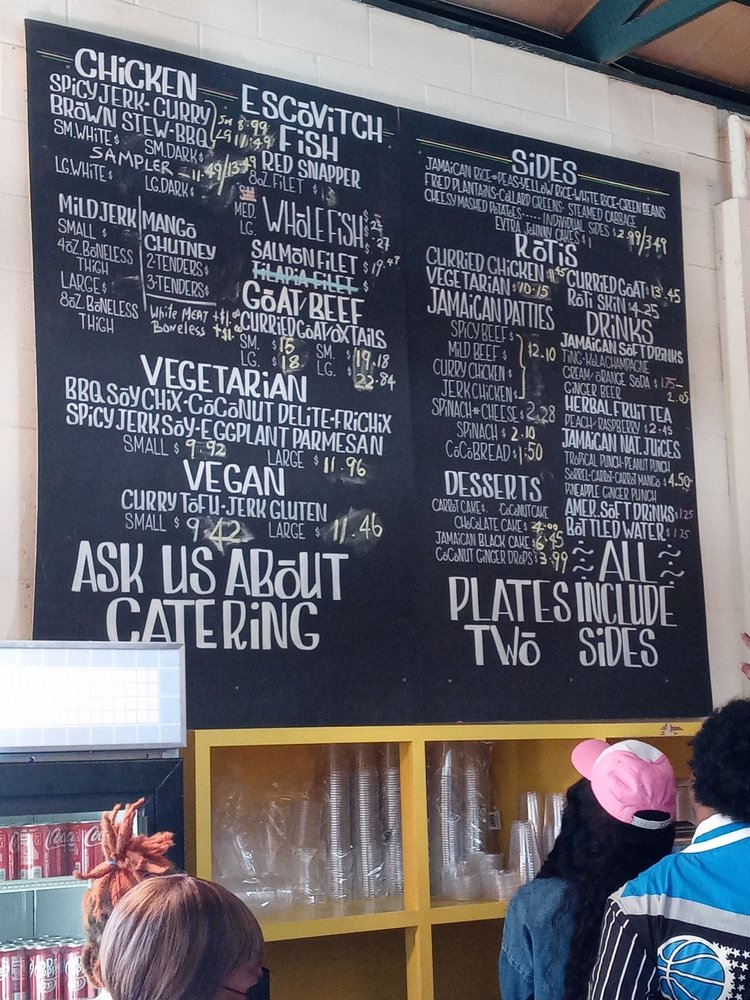 CHICKEN
SPICY JERK - CURRY
BROWN STEW - BBQ
SM 8.99
LG 11.49
SM. WHITE $ SM. DARK $
SAMPLER - 11.49/13.49
LG. WHITE $ LG. DARK $
MILD JERK
SMALL $
4OZ. BONELESS
THIGH
LARGE $
8OZ. BONELESS
THIGH
MANGO
CHUTNEY
2-TENDERS $
3-TENDERS $
White MEAT +$1.00
Boneless +$1.00
ESCOVITCH
FISH
RED SNAPPER
8OZ. FILET $
MED. WHOLE FISH $
LG. $ 27
SALMON FILET $ 19.48
TILAPIA FILET $
GOAT/BEEF
CURRIED GOAT/OXTAILS
SM. $ 15 SM. $ 19.18
LG. $ 18 LG. $ 22.84
VEGETARIAN
BBQ SOY CHIX - COCONUT DELITE - FRICHIX
SPICY JERK SOY - EGGPLANT PARMESAN
SMALL $ 9.92 LARGE $ 11.96
VEGAN
CURRY TOFU - JERK GLUTEN
SMALL $ 9.42 LARGE $ 11.46
ASK US ABOUT
CATERING
SIDES
JAMAICAN RICE & PEAS - YELLOW RICE - WHITE RICE - GREEN BEANS
FRIED PLANTAINS - COLLARD GREENS - STEAMED CABBAGE
CHEESY MASHED POTATOES ----- INDIVIDUAL SIDES $ 2.99/3.49
EXTRA JOHNNY CAKES $ 1
ROTIS
CURRIED CHICKEN $
VEGETARIAN $ 10.15
CURRIED GOAT $ 13.45
ROTI SKIN $ 4.25
JAMAICAN PATTIES
SPICY BEEF $
MILD BEEF $
CURRY CHICKEN $
JERK CHICKEN $
$2.10
SPINACH & CHEESE $ 2.28
SPINACH $ 2.10
COCO BREAD $ 1.50
DESSERTS
CARROT CAKE $ COCONUT CAKE
CHOCOLATE CAKE $ 4.00
JAMAICAN BLACK CAKE $ 6.45
COCONUT GINGER DROPS $ 3.99
DRINKS
JAMAICAN SOFT DRINKS
TING - KOLA CHAMPAGNE
CREAM/ORANGE SODA $ 1.75-
GINGER BEER 2.05
HERBAL FRUIT TEA
PEACH/RASPBERRY $ 2.45
JAMAICAN NAT. JUICES
TROPICAL PUNCH - PEANUT PUNCH
SORREL - CARROT - CARROT MANGO $ 4.50
PINEAPPLE GINGER PUNCH
AMER. SOFT DRINKS $ 1.25
BOTTLED WATER $ 1.25
ALL
PLATES INCLUDE
TWO SIDES